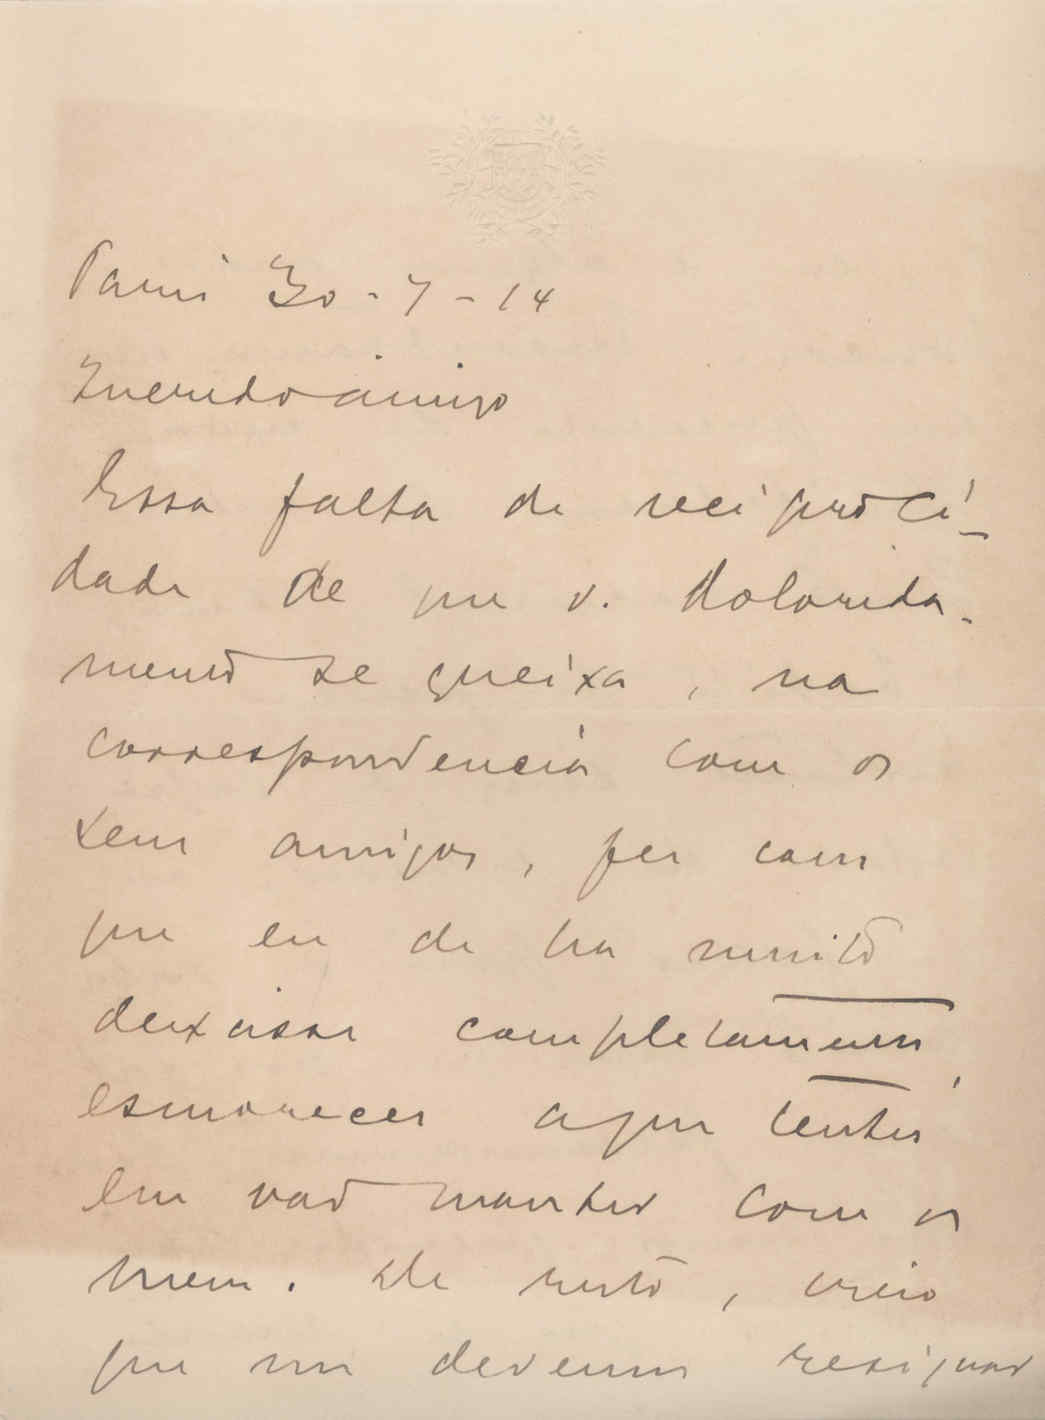 Paris 30-7-14
Querido amigo
Essa falta de reciproci-
dade de que v. dolorida-
mente se queixa, na
correspondencia com os
seus amigos, fez com
que eu de ha muito
deixasse completamente
esmorecer a que tentei
em vão manter com os
meus. De resto, creio
que nos devemos resignar